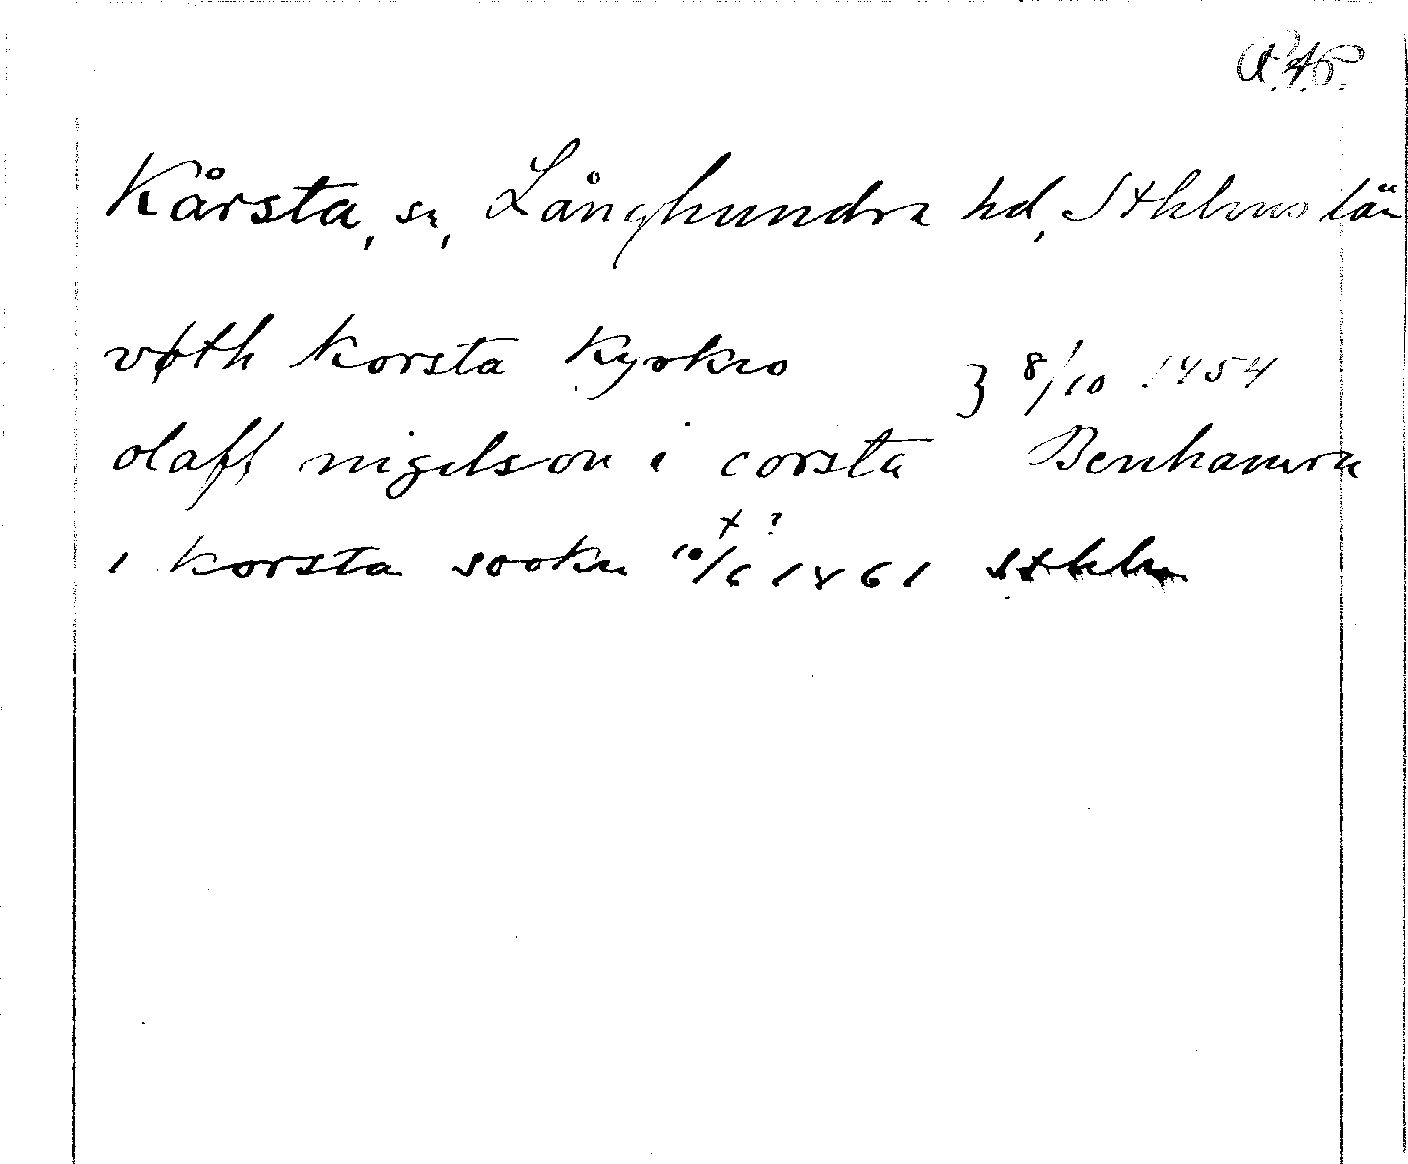 R.A.P.
Kårsta, sn, Långhundra hd, Sthlms län
vøth korsta kyrkio } 8/10 1454
olaff nigelson i corsta Benhamra
x ?
i korsta sookn 10/6 1461 Sthlm